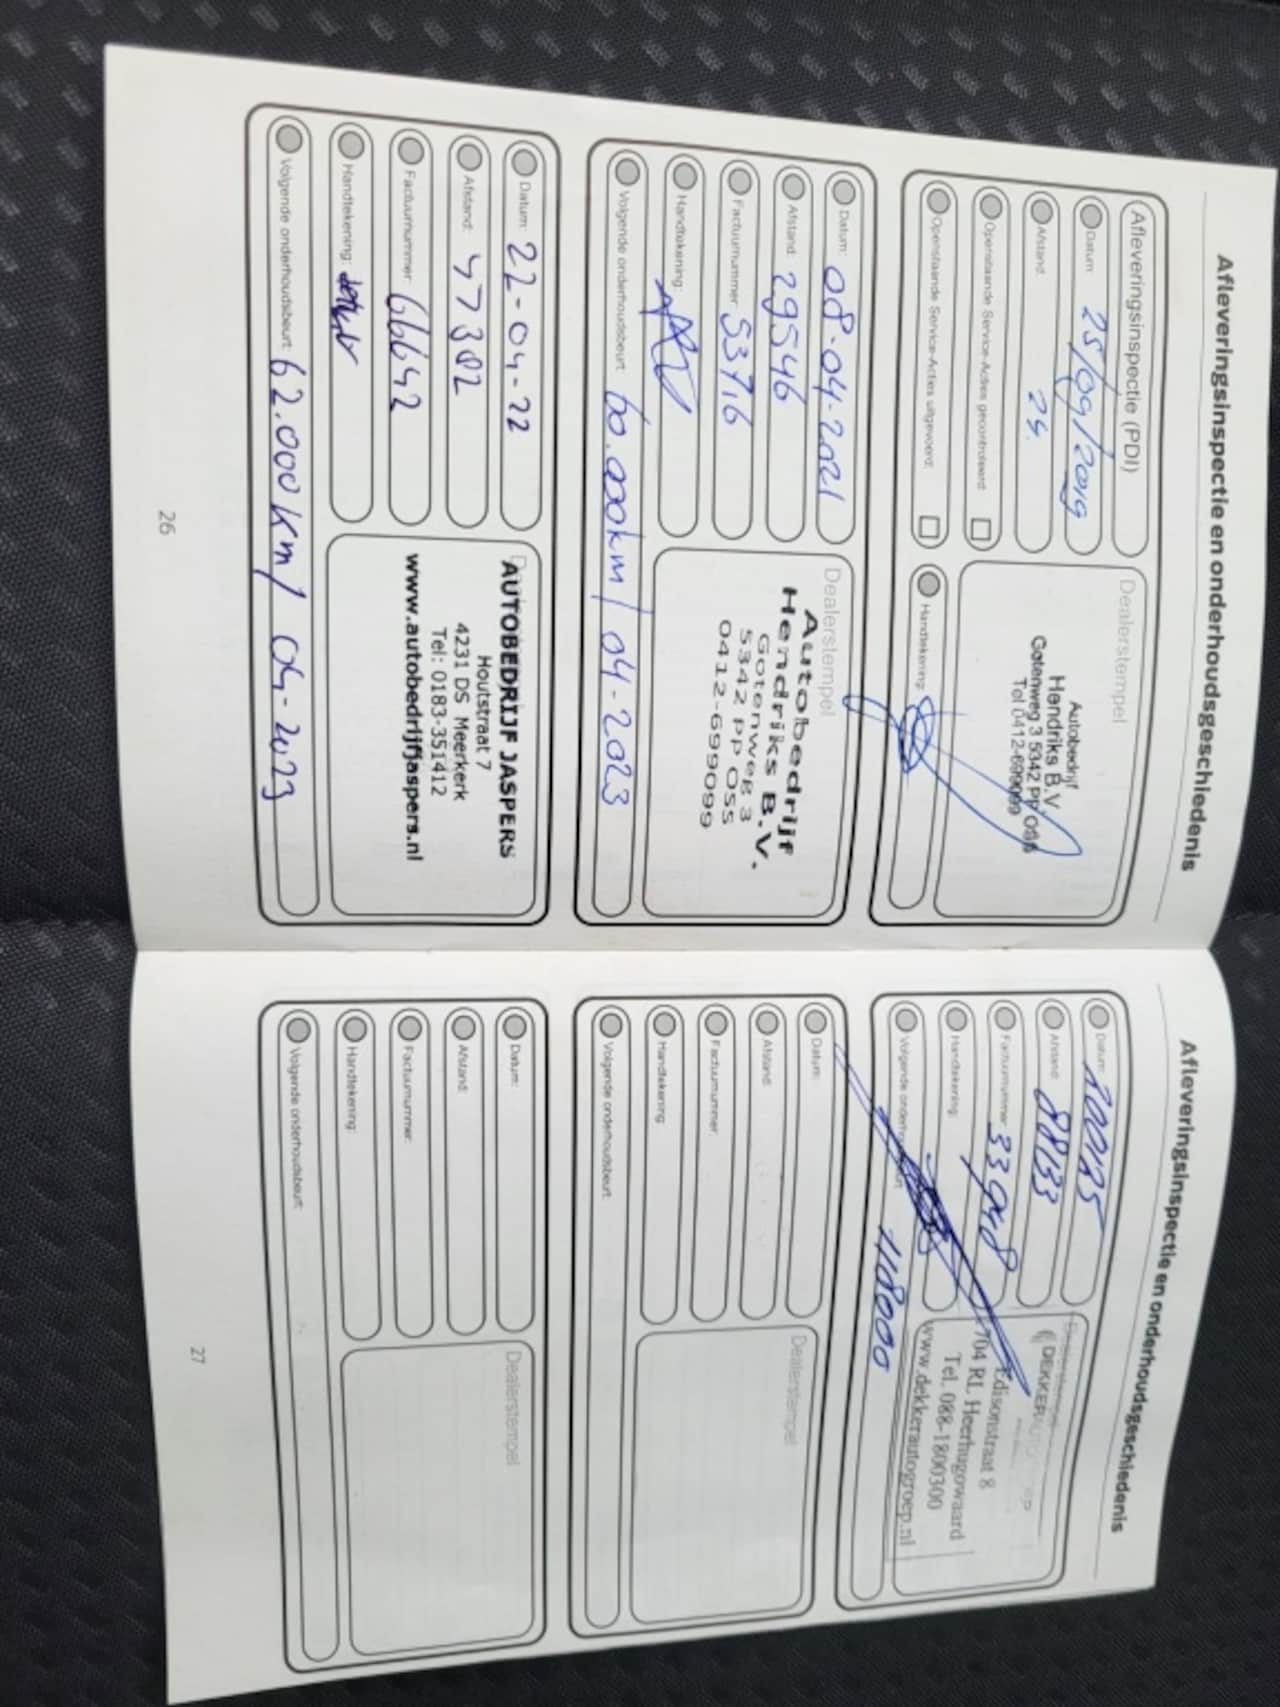 Afleveringsinspectie en onderhoudsgeschiedenis
Afleveringsinspectie (PDI)
Datum: 25/09/2019
Afstand:
Openstaande Service-Acties gecontroleerd:
Openstaande Service-Acties uitgevoerd:
Dealerstempel
Autobedrijf
Hendriks B.V.
Gotenweg 3 5342 PP OSS
Tel 0412-699099
Handtekening:
Datum: 08-04-2021
Afstand: 29546
Factuurnummer: 53716
Handtekening:
Volgende onderhoudsbeurt: 60.000km / 04-2023
Dealerstempel
Autobedrijf
Hendriks B.V.
Gotenweg 3
5342 PP OSS
0412-699099
Datum: 22-04-22
Afstand: 47382
Factuurnummer: 66642
Handtekening:
Volgende onderhoudsbeurt: 62.000km / 04-2023
AUTOBEDRIJF JASPERS
Houtstraat 7
4231 DS Meerkerk
Tel: 0183-351412
www.autobedrijfjaspers.nl
26
Afleveringsinspectie en onderhoudsgeschiedenis
Datum:
Afstand: 88133
Factuurnummer:
Handtekening:
Volgende onderhoudsbeurt: 118000
Dealerstempel
DEKKERAUTO
Edisonstraat 8
1704 RL Heerhugowaard
Tel. 088-1800300
www.dekkerautogroep.nl
Datum:
Afstand:
Factuurnummer:
Handtekening:
Volgende onderhoudsbeurt:
Dealerstempel
Datum:
Afstand:
Factuurnummer:
Handtekening:
Volgende onderhoudsbeurt:
Dealerstempel
27